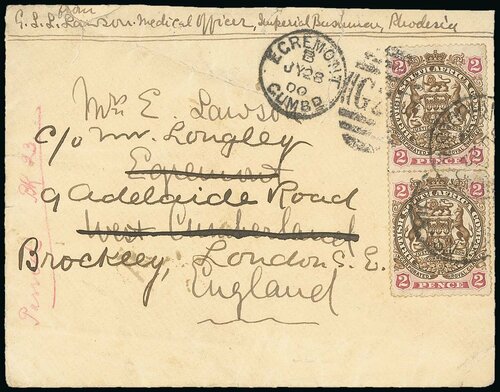 G. L. L. Lawson. Medical Officer, Imperial Bushmen, Rhodesia
EGREMONT
B
JY 28
00
CUMBD
Mrs E. Lawson
c/o Mr. Longley
Egremont
9 Adelaide Road
West Cumberland
Brockley, London S.E.
England
2 2
2 PENCE 2
BRITISH SOUTH AFRICA COMPANY
2 2
2 PENCE 2